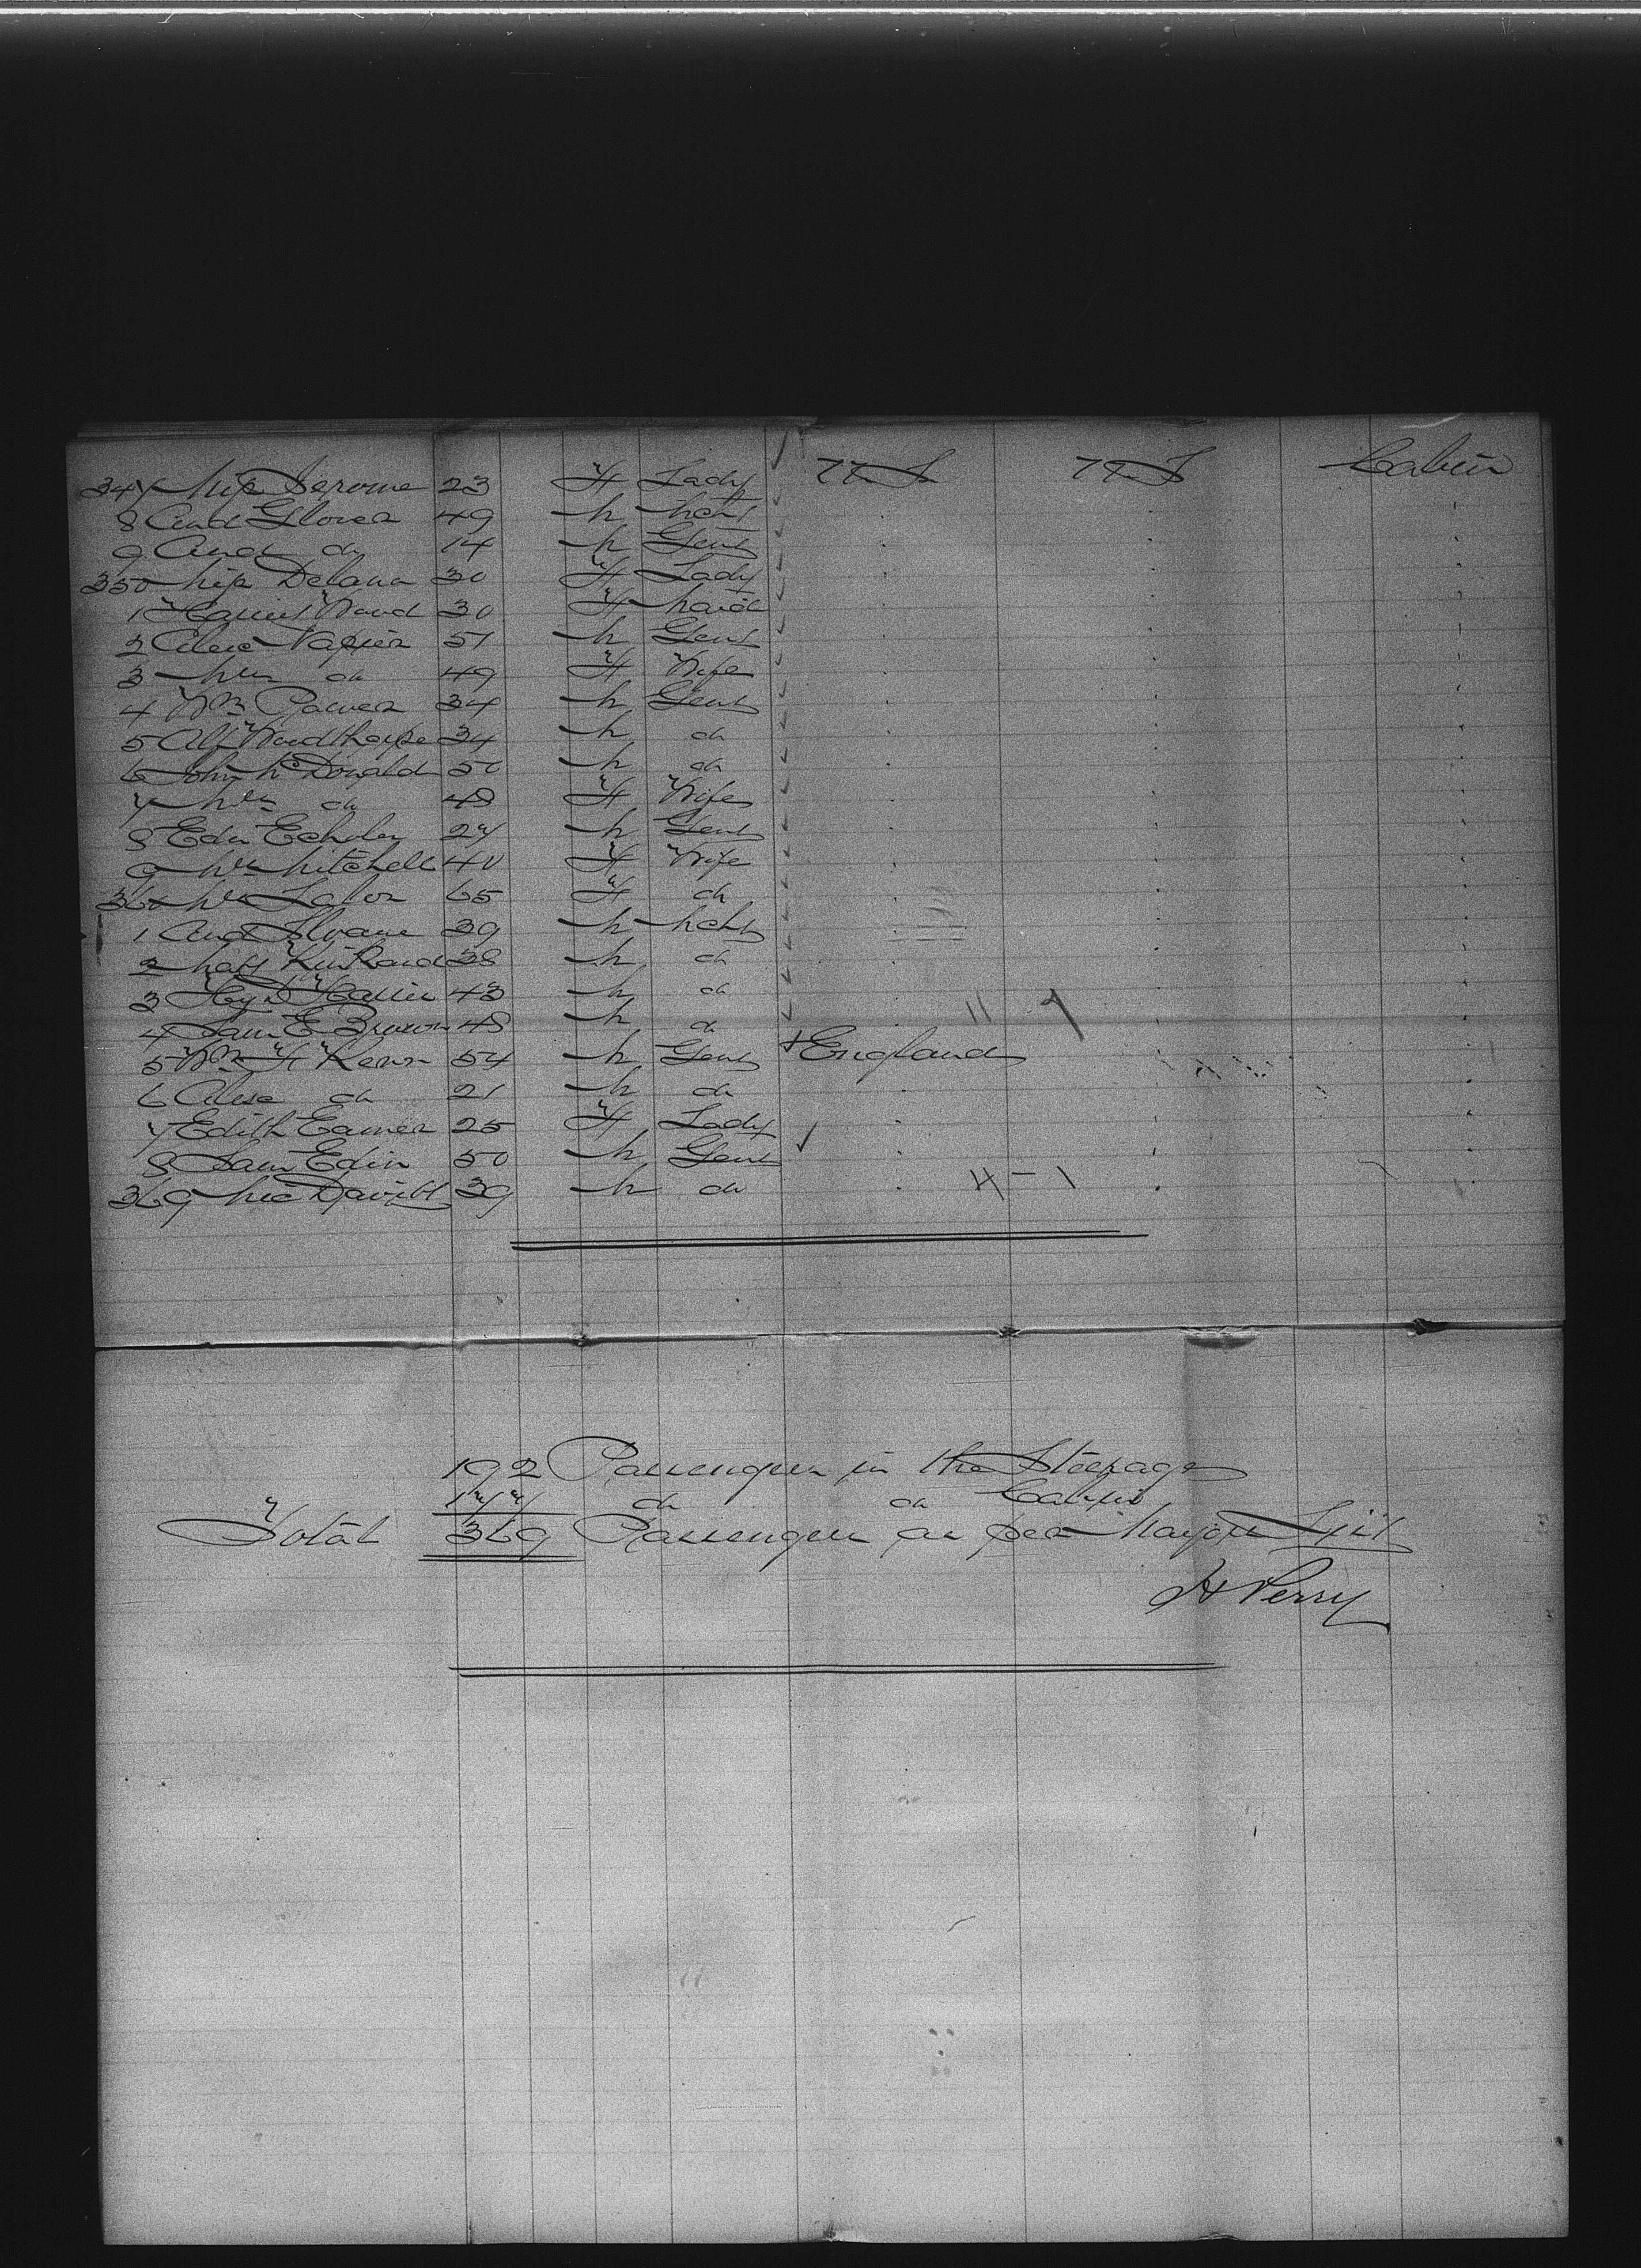 347 Miss Jerome 23 F Lady U.S. U.S. Cabin
8 And Glover 49 M Mcht
9 And do 14 M Gent
350 Miss Delana 30 F Lady
1 Harriet Wood 30 F Maid
2 Alex Napier 51 M Gent
3 Mrs do 49 F Wife
4 Wm Power 34 M Gent
5 Alf Woodthorpe 34 M do
6 John McDonald 50 M do
7 Mrs do 48 F Wife
8 Edw 27 M Gent
9 Mrs Mitchell 40 F Wife
360 Mrs 65 F do
1 And Sloane 39 M Mcht
2 38 M do
3 Hy D 43 M do
4 Sam E Brown 48 M do 11 7
5 Wm H Kerr 54 M Gent England
6 Alex do 21 M do
7 Edith Eamer 25 F Lady
8 Sam Edin 50 M Gent
369 Mic Davitt 39 M do 4 - 1
192 Passengers in the Steerage
177 do do Cabin
Total 369 Passengers as per List
H Perry